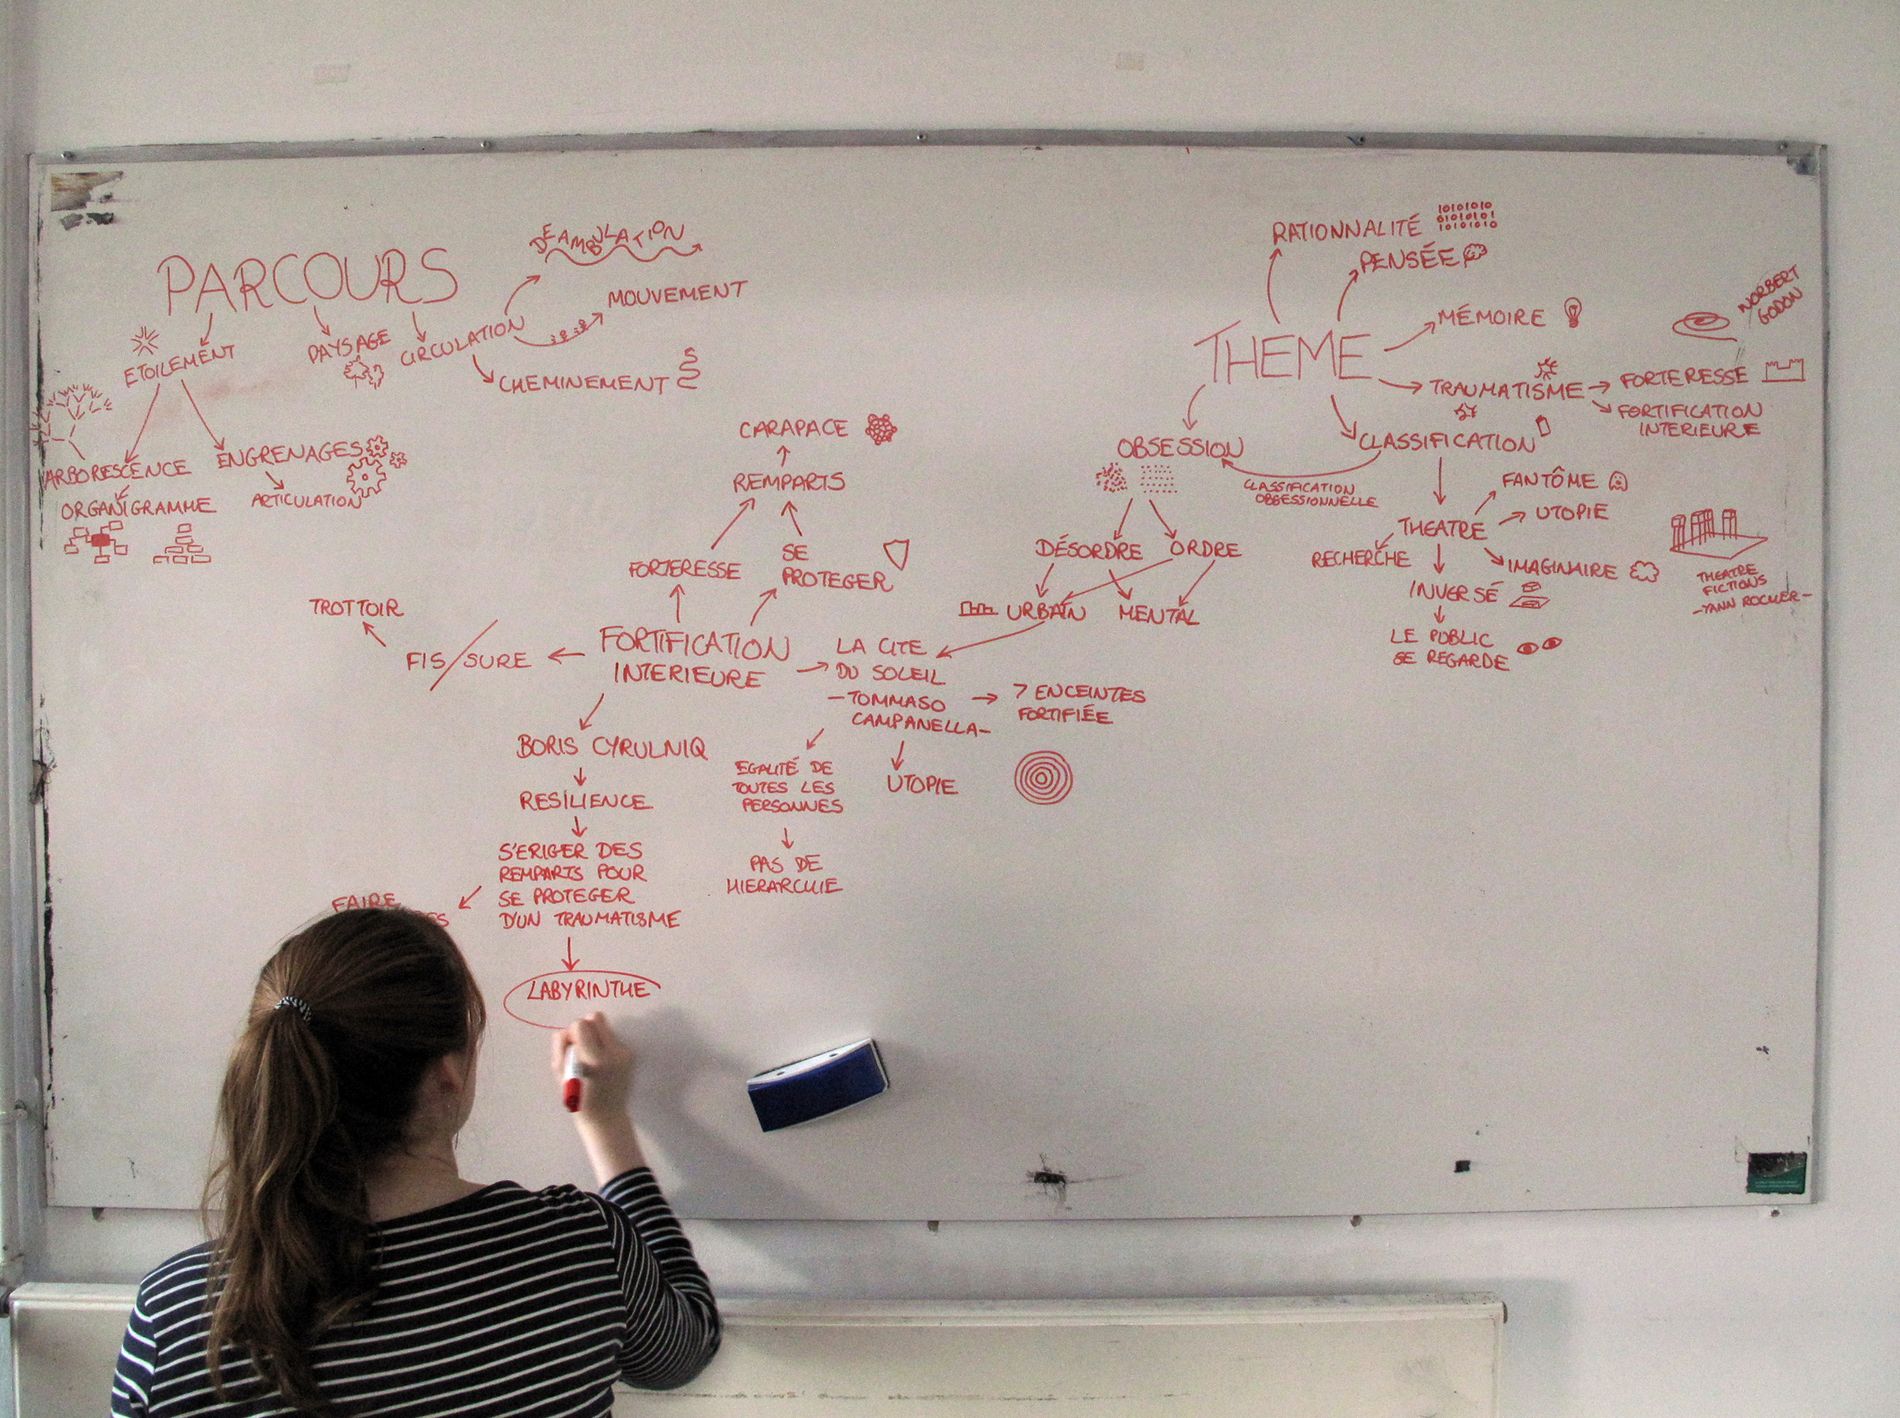 PARCOURS
ETOILEMENT
PAYSAGE
CIRCULATION
DÉAMBULATION
MOUVEMENT
CHEMINEMENT
ARBORESCENCE
ORGANIGRAMME
ENGRENAGES
ARTICULATION
CARAPACE
REMPARTS
FORTERESSE
SE
PROTEGER
TROTTOIR
FIS/SURE
FORTIFICATION
INTERIEURE
LA CITE
DU SOLEIL
-TOMMASO
CAMPANELLA-
7 ENCEINTES
FORTIFIÉE
EGALITÉ DE
TOUTES LES
PERSONNES
UTOPIE
PAS DE
HIERARCHIE
BORIS CYRULNIQ
RESILIENCE
S'ERIGER DES
REMPARTS POUR
SE PROTEGER
D'UN TRAUMATISME
FAIRE
LABYRINTHE
THEME
RATIONNALITÉ
01010101
01010101
10101010
PENSÉE
MÉMOIRE
NORBERT
GODON
TRAUMATISME
FORTERESSE
FORTIFICATION
INTERIEURE
OBSESSION
CLASSIFICATION
CLASSIFICATION
OBSESSIONNELLE
DÉSORDRE
ORDRE
URBAIN
MENTAL
THEATRE
FANTÔME
UTOPIE
RECHERCHE
IMAGINAIRE
INVERSÉ
LE PUBLIC
SE REGARDE
THEATRE
FICTIONS
-YANN ROCHER-